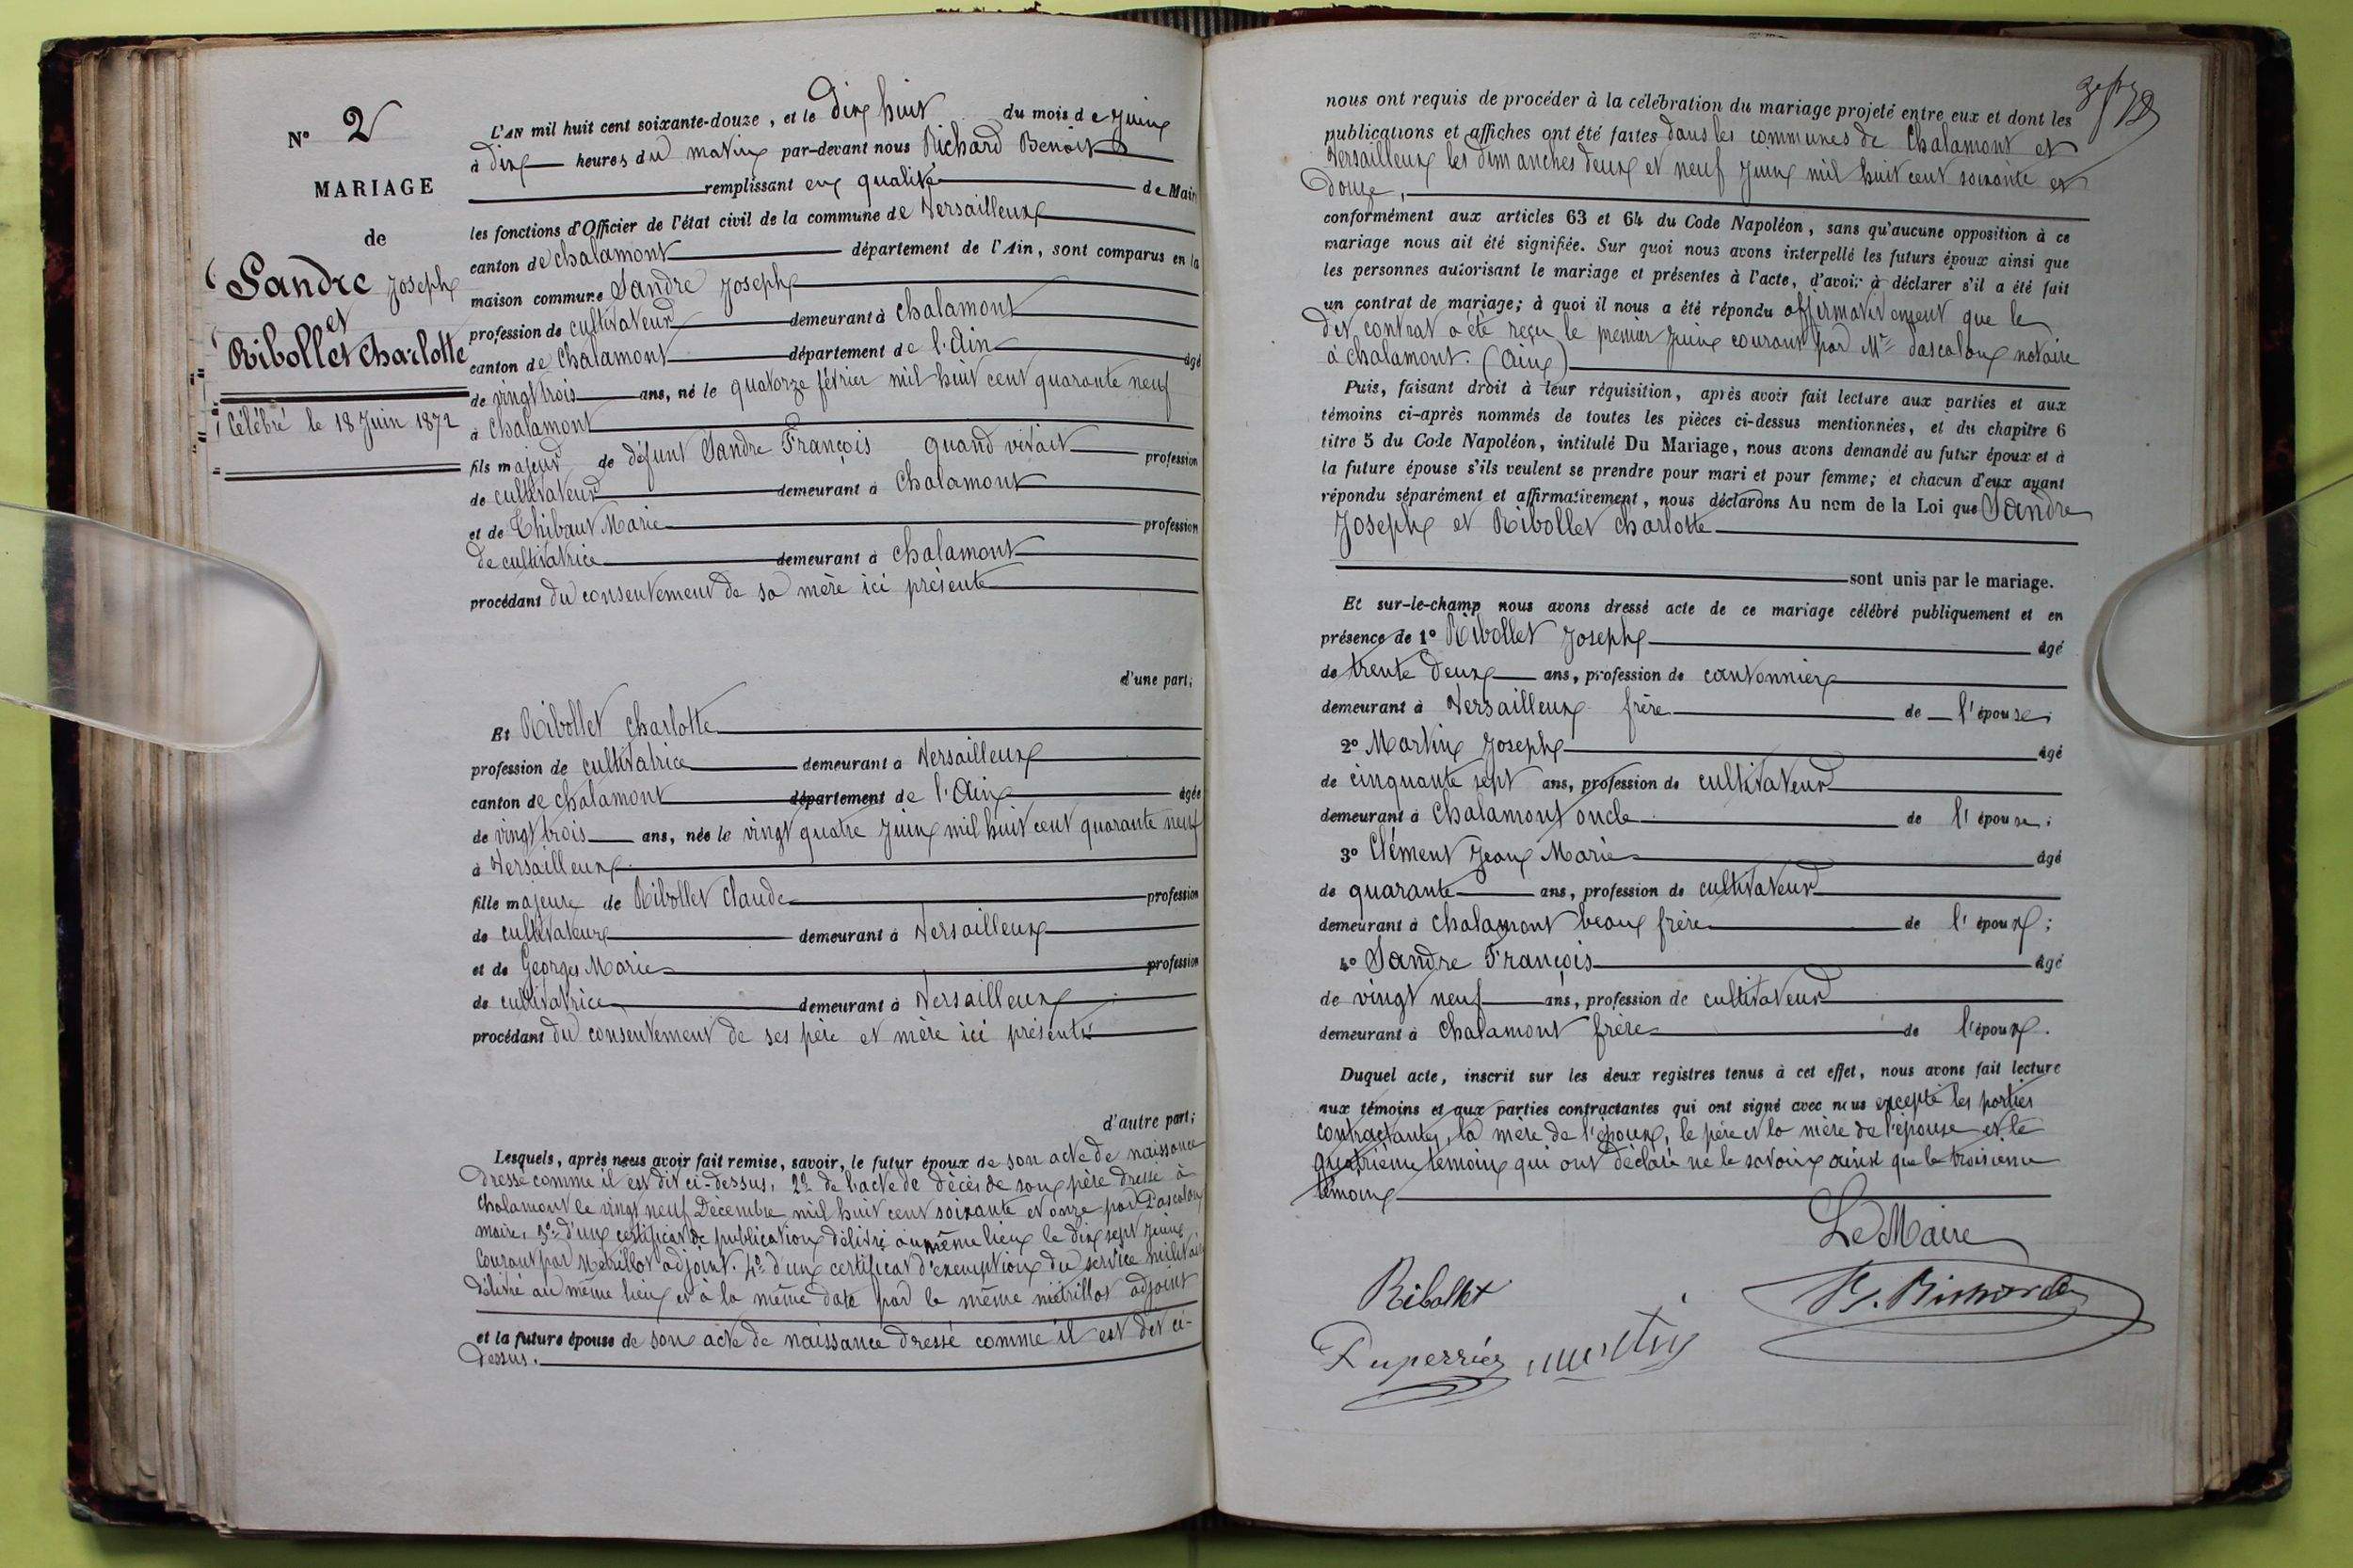 N° 2
MARIAGE
de
Sandre Joseph
et
Ribollet Charlotte
Célébré le 18 Juin 1872
L'AN mil huit cent soixante-douze, et le dix huit du mois de Juin
à dix heures du matin par-devant nous Richard Benoit
remplissant en qualité de Mair
les fonctions d'Officier de l'état civil de la commune de Versailleux
canton de chalamont département de l'Ain, sont comparus en la
maison commune Sandre Joseph
profession de cultivateur demeurant à chalamont
canton de chalamont département de l'Ain âgé
de vingt trois ans, né le quatorze février mil huit cent quarante neuf
à chalamont
fils majeur de défunt Sandre François quand vivait profession
de cultivateur demeurant à chalamont
et de Thibaut Marie profession
de cultivatrice demeurant à chalamont
procédant du consentement de sa mère ici présente
d'une part;
Et Ribollet charlotte
profession de cultivatrice demeurant à Versailleux
canton de chalamont département de l'Ain âgée
de vingt trois ans, née le vingt quatre Juin mil huit cent quarante neuf
à Versailleux
fille majeure de Ribollet Claude profession
de cultivateur demeurant à Versailleux
et de Georges Marie profession
de cultivatrice demeurant à Versailleux
procédant du consentement de ses père et mère ici présents
d'autre part;
Lesquels, après nous avoir fait remise, savoir, le futur époux de son acte de naissance
dressé comme il est dit ci-dessus, 2° de l'acte de décès de son père dressé à
chalamont le vingt neuf Décembre mil huit cent soixante et onze par Dascalon
maire, 3° d'un certificat de publication délivré au même lieu le dix sept Juin
courant par Metrillot adjoint. 4° d'un certificat d'exemption du service militaire
délivré au même lieu et à la même date par le même métrillot adjoint
et la future épouse de son acte de naissance dressé comme il est dit ci-
dessus.
nous ont requis de procéder à la célébration du mariage projeté entre eux et dont les
publications et affiches ont été faites dans les communes de Chalamont et
Versailleux les dimanches deux et neuf Juin mil huit cent soixante et
douze,
conformément aux articles 63 et 64 du Code Napoléon, sans qu'aucune opposition à ce
mariage nous ait été signifiée. Sur quoi nous avons interpellé les futurs époux ainsi que
les personnes autorisant le mariage et présentes à l'acte, d'avoir à déclarer s'il a été fait
un contrat de mariage; à quoi il nous a été répondu affirmativement que le
dit contrat a été reçu le premier Juin courant par Mre dascalon notaire
à chalamont. (Ain)
Puis, faisant droit à leur réquisition, après avoir fait lecture aux parties et aux
témoins ci-après nommés de toutes les pièces ci-dessus mentionnées, et du chapitre 6
titre 5 du Code Napoléon, intitulé Du Mariage, nous avons demandé au futur époux et à
la future épouse s'ils veulent se prendre pour mari et pour femme; et chacun d'eux ayant
répondu séparément et affirmativement, nous déclarons Au nom de la Loi que Sandre
Joseph et Ribollet charlotte
sont unis par le mariage.
Et sur-le-champ nous avons dressé acte de ce mariage célébré publiquement et en
présence de 1° Ribollet Joseph âgé
de trente deux ans, profession de cantonnier
demeurant à Versailleux frère de l'épouse;
2° Martin Joseph âgé
de cinquante sept ans, profession de cultivateur
demeurant à chalamont oncle de l'épouse;
3° Clément Jean Marie âgé
de quarante ans, profession de cultivateur
demeurant à chalamont beau frère de l'époux;
4° Sandre François âgé
de vingt neuf ans, profession de cultivateur
demeurant à chalamont frère de l'époux.
Duquel acte, inscrit sur les deux registres tenus à cet effet, nous avons fait lecture
aux témoins et aux parties contractantes qui ont signé avec nous excepté les parties
contractantes, la mère de l'époux, le père et la mère de l'épouse et le
quatrième témoin qui ont déclaré ne le savoir ainsi que le troisième
témoin
Le Maire
Ribollet
B. Richard
Duperrier martin